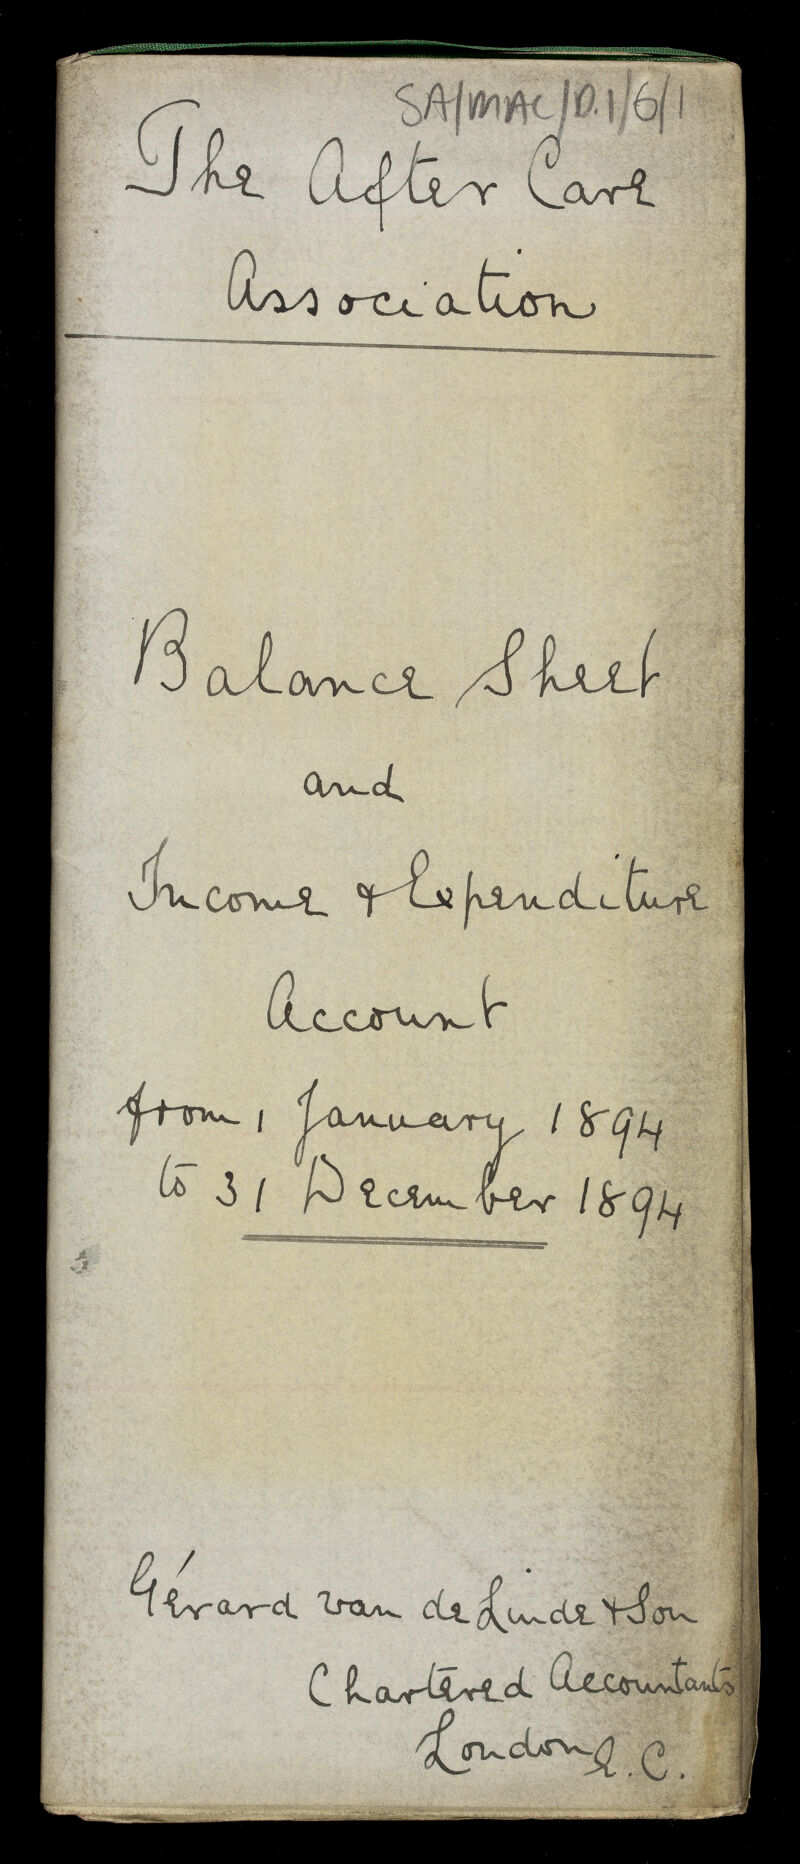 SA/MAC/D.1/6/1
The After Care
Association
Balance Sheet
and
Income & Expenditure
Account
from 1 January 1894
to 31 December 1894
Gérard van de Linde & Son
Chartered Accountants
London E.C.